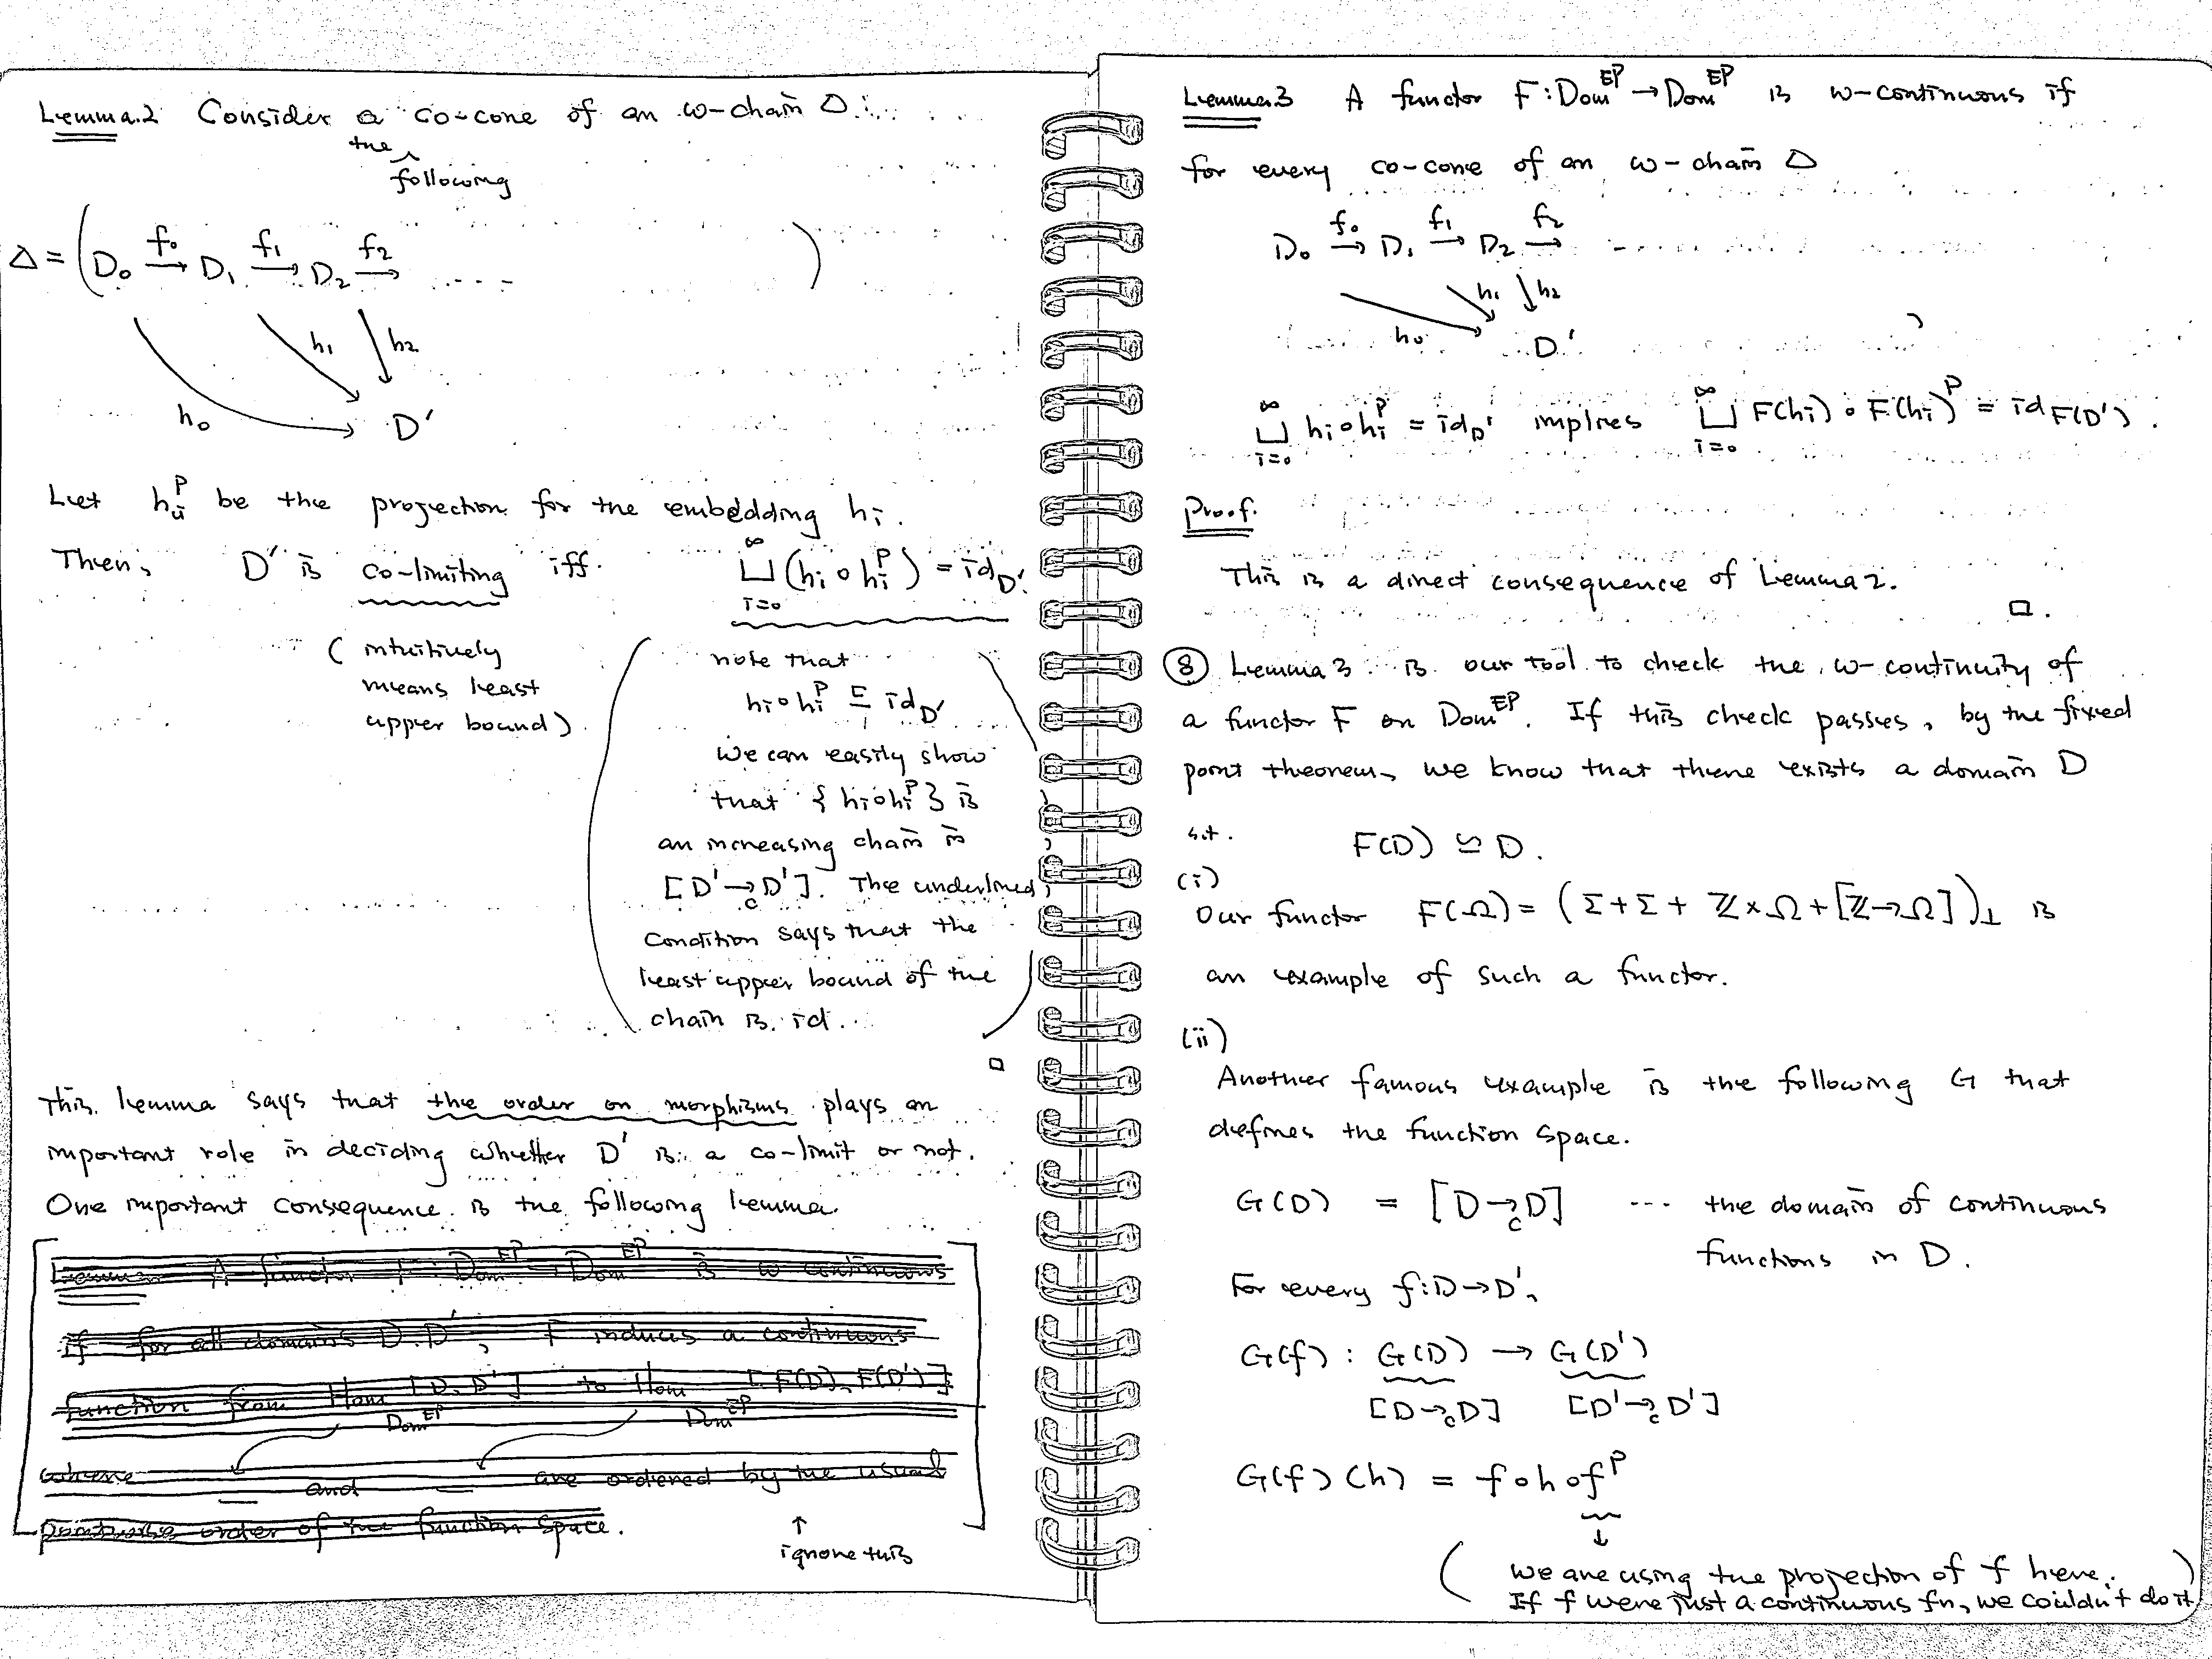 Lemma 2 Consider a co-cone of an ω-chain Δ :
the following
Δ = ( D₀ →f₀ D₁ →f₁ D₂ →f₂ ..... )
h₁ h₂
h₀ D′
Let hᵢᴾ be the projection for the embedding hᵢ.
Then, D′ is co-limiting iff ⊔_{i=0}^∞ (hᵢ∘hᵢᴾ) = id_D′.
( intuitively
means least
upper bound)
( note that
hᵢ∘hᵢᴾ ⊑ id_D′
we can easily show
that {hᵢ∘hᵢᴾ} is
an increasing chain in
[D′ →c D′]. The underlined
condition says that the
least upper bound of the
chain is id. )
□
This lemma says that the order on morphisms plays an
important role in deciding whether D′ is a co-limit or not.
One important consequence is the following lemma.
Lemma A functor F : Domᴱᴾ → Domᴱᴾ is ω-continuous
if for all domains D, D′, F induces a continuous
function from Hom_Domᴱᴾ [D, D′] to Hom_Domᴱᴾ [F(D), F(D′)]
where and are ordered by the usual
pointwise order of the function space.
↑
ignore this
Lemma 3 A functor F : Domᴱᴾ → Domᴱᴾ is ω-continuous if
for every co-cone of an ω-chain Δ
D₀ →f₀ D₁ →f₁ D₂ →f₂ ..........
h₁ h₂
h₀ D′ ,
⊔_{i=0}^∞ hᵢ∘hᵢᴾ = id_D′ implies ⊔_{i=0}^∞ F(hᵢ)∘F(hᵢ)ᴾ = id_F(D′).
Proof.
This is a direct consequence of Lemma 2.
□.
⑧ Lemma 3 is our tool to check the ω-continuity of
a functor F on Domᴱᴾ. If this check passes, by the fixed
point theorem, we know that there exists a domain D
s.t. F(D) ≅ D.
(i)
Our functor F(Ω) = (Σ+Σ+ ℤ×Ω+[ℤ→Ω])⊥ is
an example of such a functor.
(ii)
Another famous example is the following G that
defines the function space.
G(D) = [D →c D] ... the domain of continuous
functions in D.
For every f : D→D′,
G(f) : G(D) → G(D′)
[D →c D] [D′ →c D′]
G(f)(h) = f∘h∘fᴾ
↓
( we are using the projection of f here.
If f were just a continuous fn, we couldn't do it )